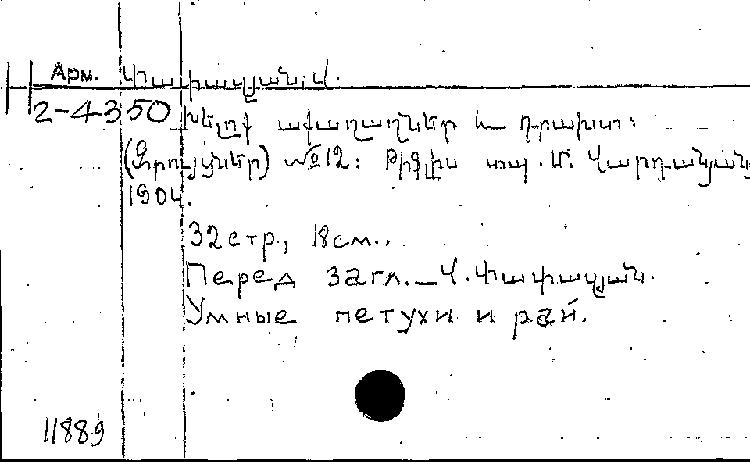 Арм. Փափազյան, Վ.
2-4350 Խելոք աքաղաղներ և դրախտ:
(Զրույցներ) №12: Թիֆլիս տպ. Մ. Վարդանյանց
1904.
32стр., 18см.
Перед загл. _ Վ. Փափազյան.
Умные петухи и рай.
11889